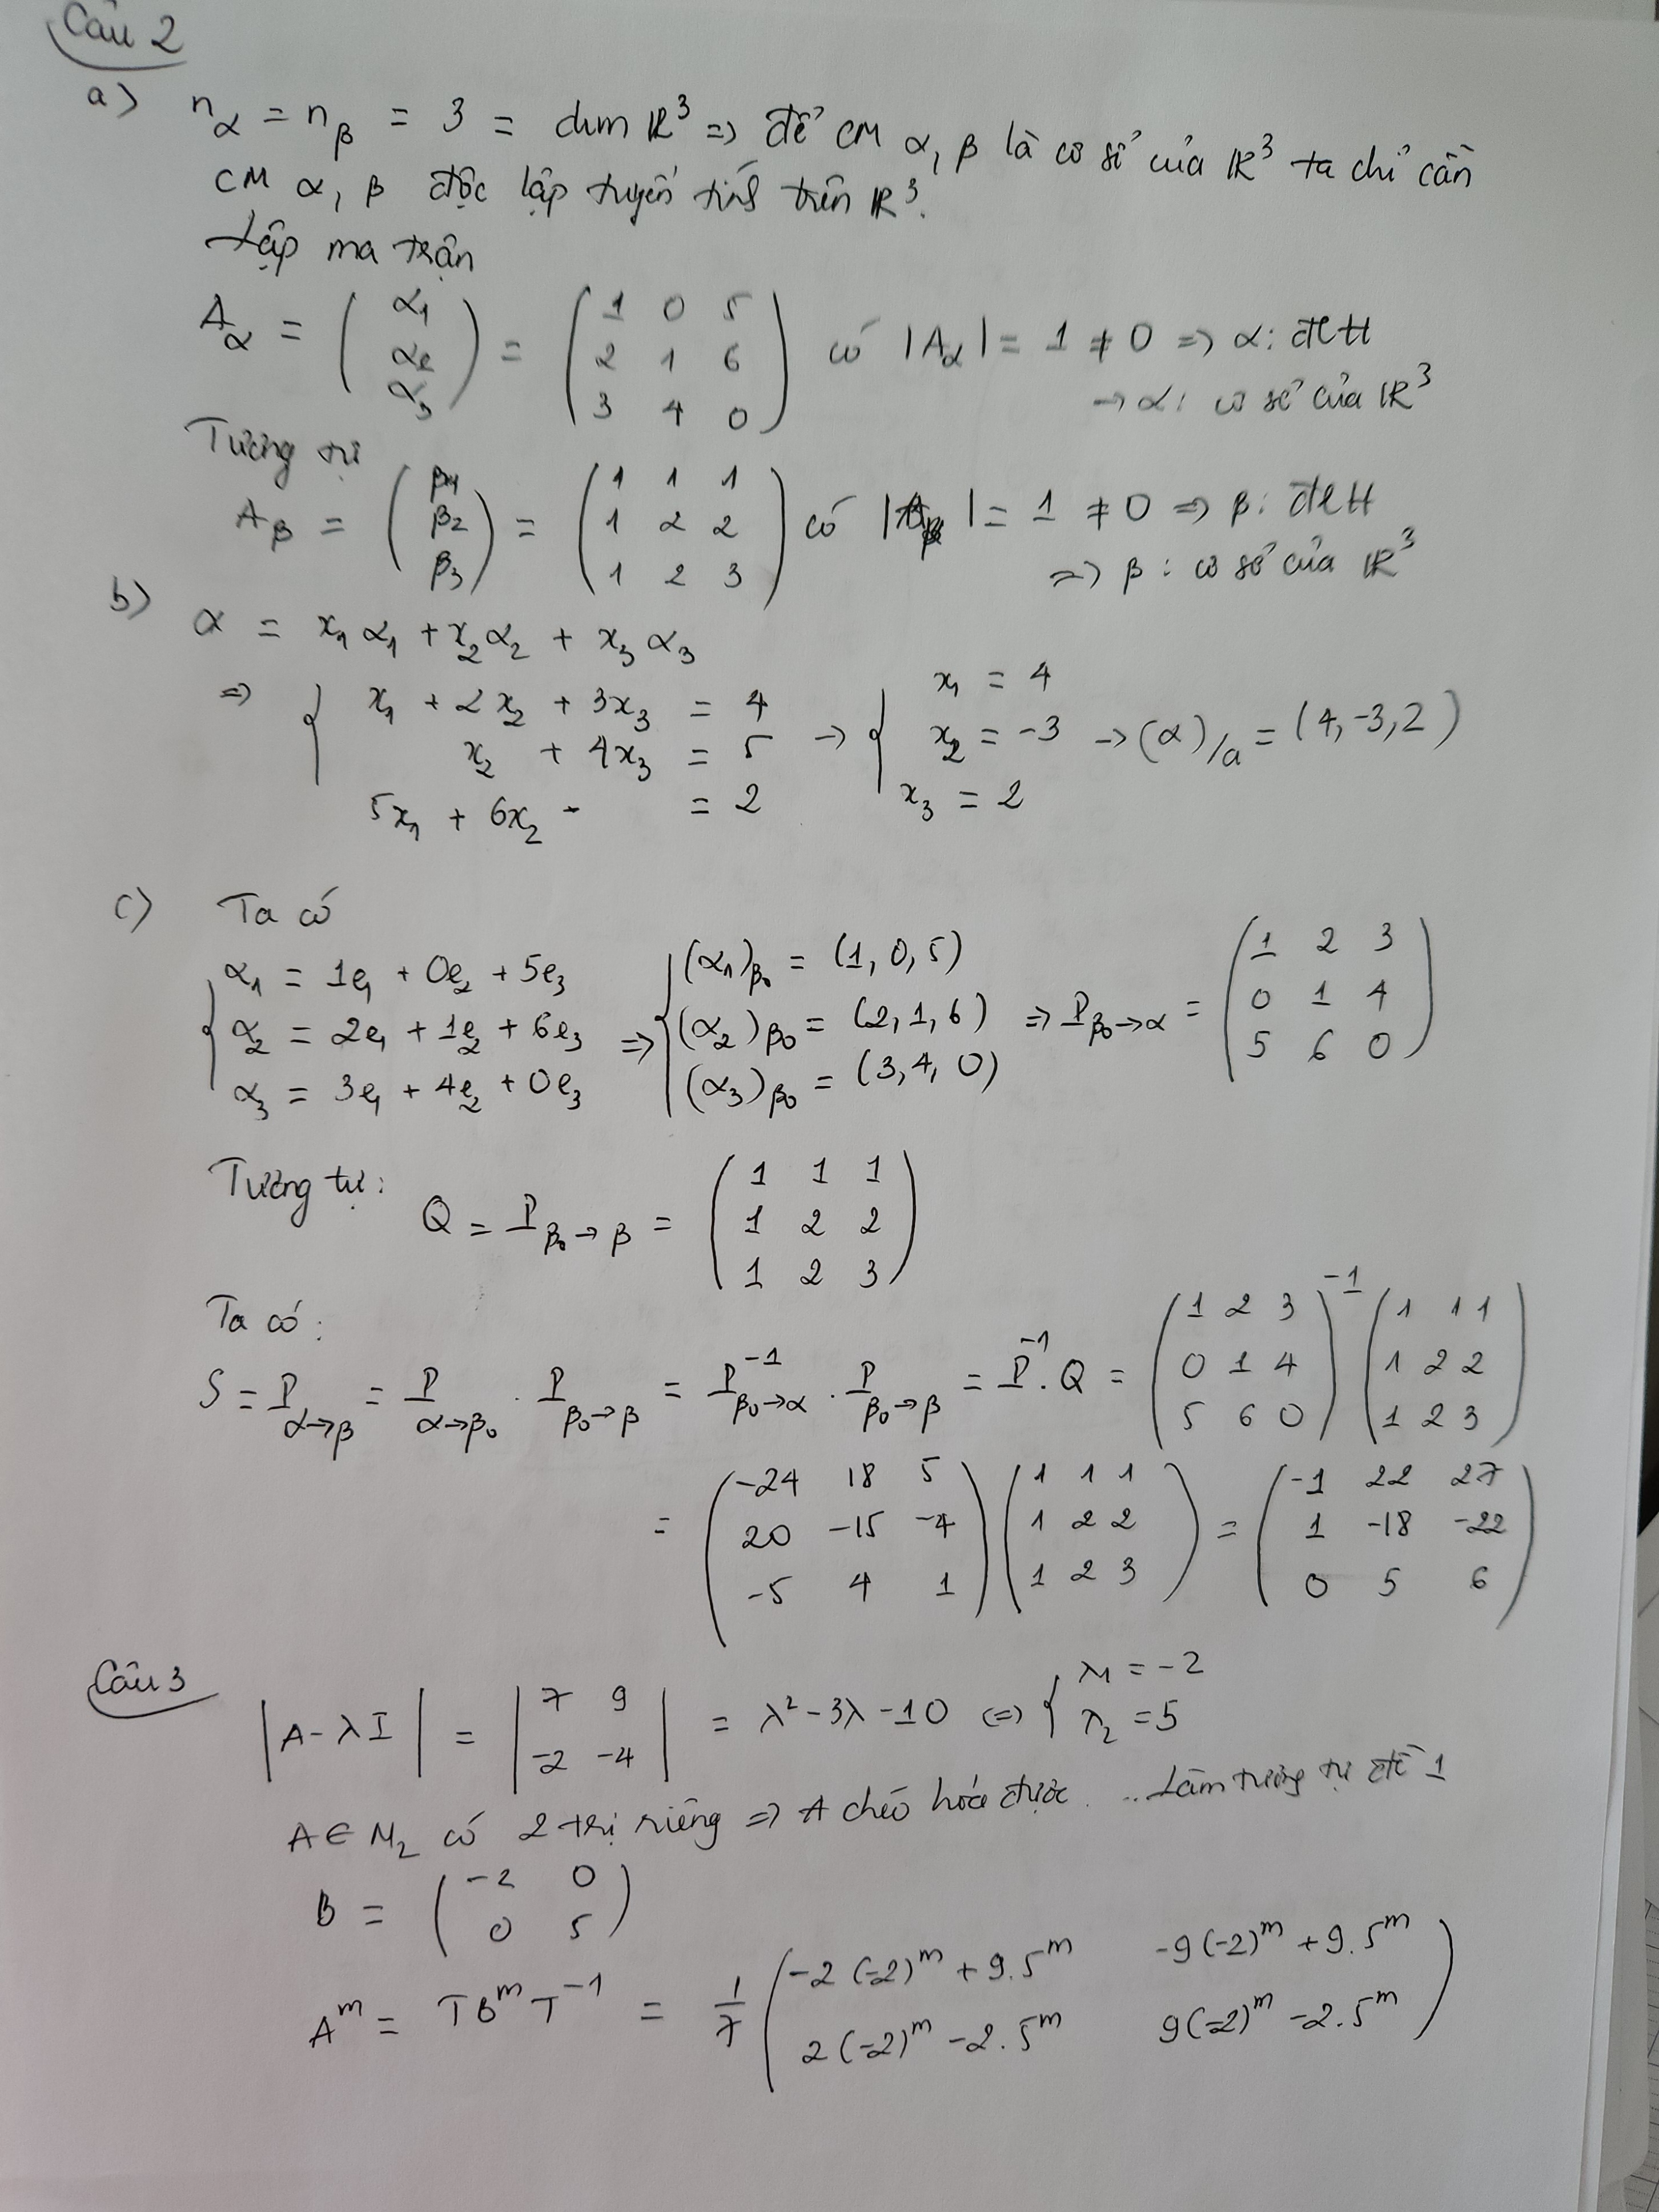 Câu 2
a) n_α = n_β = 3 = dim ℝ³ => để CM α, β là cơ sở của ℝ³ ta chỉ cần
CM α, β độc lập tuyến tính trên ℝ³.
Lập ma trận
A_α = (α₁; α₂; α₃) = (1 0 5; 2 1 6; 3 4 0) có |A_α| = 1 ≠ 0 => α: đltt
→ α: cơ sở của ℝ³
Tương tự
A_β = (β₁; β₂; β₃) = (1 1 1; 1 2 2; 1 2 3) có |A_β| = 1 ≠ 0 => β: đltt
=> β: cơ sở của ℝ³
b) α = x₁α₁ + x₂α₂ + x₃α₃
=> { x₁ + 2x₂ + 3x₃ = 4; x₂ + 4x₃ = 5; 5x₁ + 6x₂ = 2 → { x₁ = 4; x₂ = -3; x₃ = 2 → (α)/a = (4, -3, 2)
c) Ta có
{ α₁ = 1e₁ + 0e₂ + 5e₃; α₂ = 2e₁ + 1e₂ + 6e₃; α₃ = 3e₁ + 4e₂ + 0e₃ => { (α₁)β₀ = (1, 0, 5); (α₂)β₀ = (2, 1, 6); (α₃)β₀ = (3, 4, 0) => P_β₀→α = (1 2 3; 0 1 4; 5 6 0)
Tương tự: Q = P_β₀→β = (1 1 1; 1 2 2; 1 2 3)
Ta có:
S = P_α→β = P_α→β₀ . P_β₀→β = P⁻¹_β₀→α . P_β₀→β = P⁻¹ . Q = (1 2 3; 0 1 4; 5 6 0)⁻¹ (1 1 1; 1 2 2; 1 2 3)
= (-24 18 5; 20 -15 -4; -5 4 1) (1 1 1; 1 2 2; 1 2 3) = (-1 22 27; 1 -18 -22; 0 5 6)
Câu 3
|A - λI| = |7 9; -2 -4| = λ² - 3λ - 10 <=> { λ₁ = -2; λ₂ = 5
A ∈ M₂ có 2 trị riêng => A chéo hóa được... Làm tương tự đề 1
B = (-2 0; 0 5)
Aᵐ = TBᵐT⁻¹ = 1/7 (-2(-2)ᵐ + 9.5ᵐ -9(-2)ᵐ + 9.5ᵐ; 2(-2)ᵐ - 2.5ᵐ 9(-2)ᵐ - 2.5ᵐ)